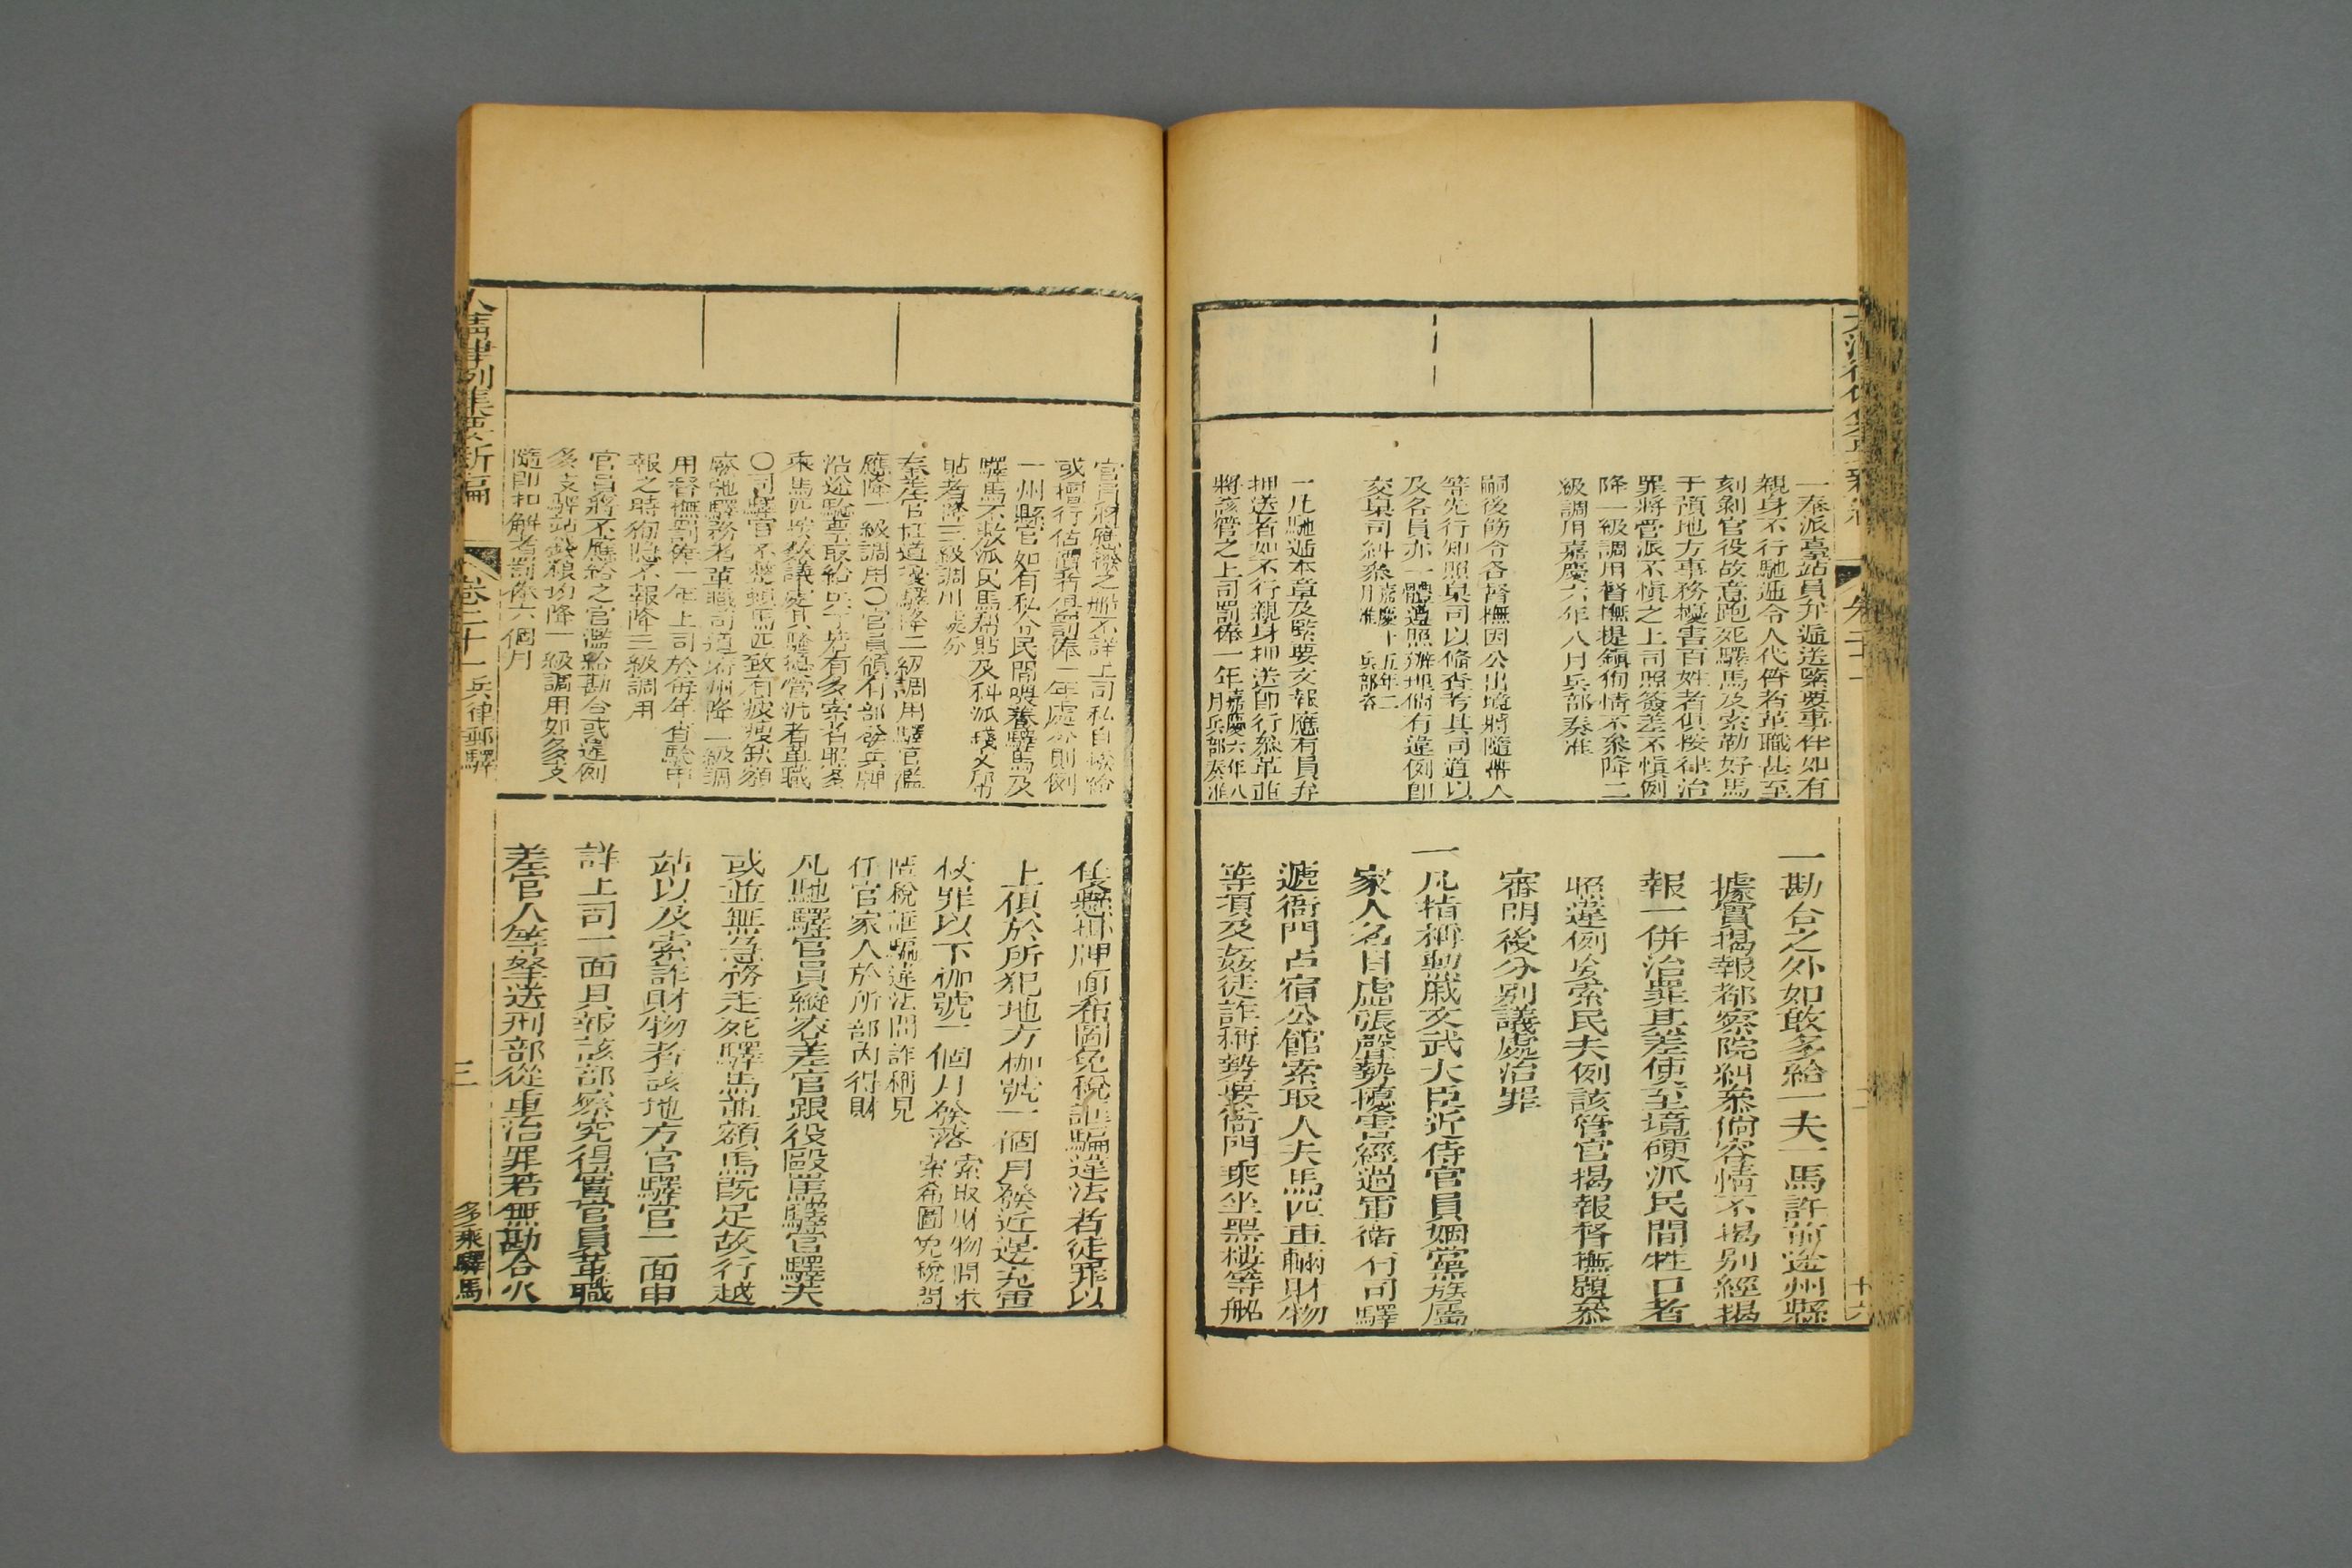 一奉派臺站員弁遞送緊要事件如有
親身不行馳遞令人代賫者革職甚至
刻剝官役故意跑死驛馬及索勒好馬
干預地方事務擾害百姓者俱按律治
罪將管派不慎之上司照簽差不慎例
降一級調用督撫提鎮徇情不叅降二
級調用嘉慶六年八月兵部奏准
嗣後飭令各督撫因公出境將隨帶人
等先行知照臬司以備查考其司道以
及各員亦一體遵照辦理倘有違例卽
交臬司糾叅嘉慶十五年二月兵部咨准
一凡馳遞本章及緊要文報應有員弁
押送者如不行親身押送卽行叅革並
將該管之上司罰俸一年嘉慶六年八月兵部奏准
一勘合之外如敢多給一夫一馬許前途州縣
據實揭報都察院糾叅倘容情不揭別經揭
報一併治罪其差使至境硬派民間牲口者
照違例妄索民夫例該管官揭報督撫題叅
審明後分別議處治罪
一凡指稱勳戚文武大臣近侍官員姻黨族屬
家人名目虛張聲勢擾害經過軍衛有司驛
遞衙門占宿公館索取人夫馬匹車輛財物
等項及姦徒詐稱勢要衙門乘坐黑樓等船
十六
官員將應撥之船不詳上司私自撥給
或擅行估價者俱罰俸一年處分則例
一州縣官如有私令民間喂養驛馬及
驛馬不敷派民馬帮貼及科派錢文帮
貼者降三級調用處分
奉差官枉道擾驛降二級調用驛官濫
應降一級調用〇官員領有部發兵牌
沿途騷擾取給口糧有多索者照多
乘馬匹按數議處其隨從營汛者革職
〇司驛官不禁蝗馬匹致有疲瘦缺額
廢弛驛務者革職司道府州降一級調
用督撫罰俸一年上司於每年查驗申
報之時徇隱不報降三級調用
官員將不應給之官濫給勘合或違例
多支驛站錢糧均降一級調用如多支
隨卽扣解者罰俸六個月
張懸掛牌面希圖免稅誆騙違法者徒罪以
上偵於所犯地方枷號一個月發近邊充軍
杖罪以下枷號一個月發落索取財物問求索希圖免稅問
匿稅誆騙違法問詐稱見
任官家人於所部內得財
凡馳驛官員縱容差官跟役毆罵驛官驛夫
或並無急務走死驛馬並額馬旣足故行越
站以及索詐財物者該地方官驛官一面申
詳上司一面具報該部察究得實官員革職
差官人等拏送刑部從重治罪若無勘合火
大清律例集要新編
卷二十一兵律郵驛
三
多乘驛馬